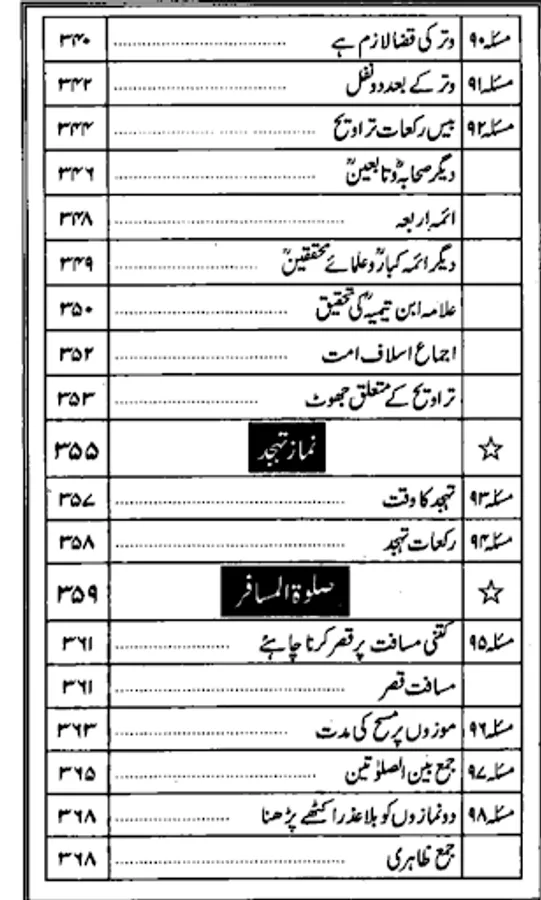 مسئلہ۹۰ وتر کی قضا لازم ہے ۳۴۰
مسئلہ۹۱ وتر کے بعد دو نفل ۳۴۲
مسئلہ۹۲ بیس رکعات تراویح ۳۴۴
دیگر صحابہؓ و تابعینؒ ۳۴۶
ائمہ اربعہ ۳۴۸
دیگر ائمہ کبارؒ و علمائے محققینؒ ۳۴۹
علامہ ابن تیمیہؒ کی تحقیق ۳۵۰
اجماع اسلاف امت ۳۵۲
تراویح کے متعلق جھوٹ ۳۵۳
☆ نماز تہجد ۳۵۵
مسئلہ۹۳ تہجد کا وقت ۳۵۷
مسئلہ۹۴ رکعات تہجد ۳۵۸
☆ صلوۃ المسافر ۳۵۹
مسئلہ۹۵ کتنی مسافت پر قصر کرنا چاہئے ۳۶۱
مسافت قصر ۳۶۱
مسئلہ۹۶ موزوں پر مسح کی مدت ۳۶۳
مسئلہ۹۷ جمع بین الصلوٰتین ۳۶۵
مسئلہ۹۸ دو نمازوں کو بلا عذر اکٹھے پڑھنا ۳۶۸
جمع ظاہری ۳۶۸